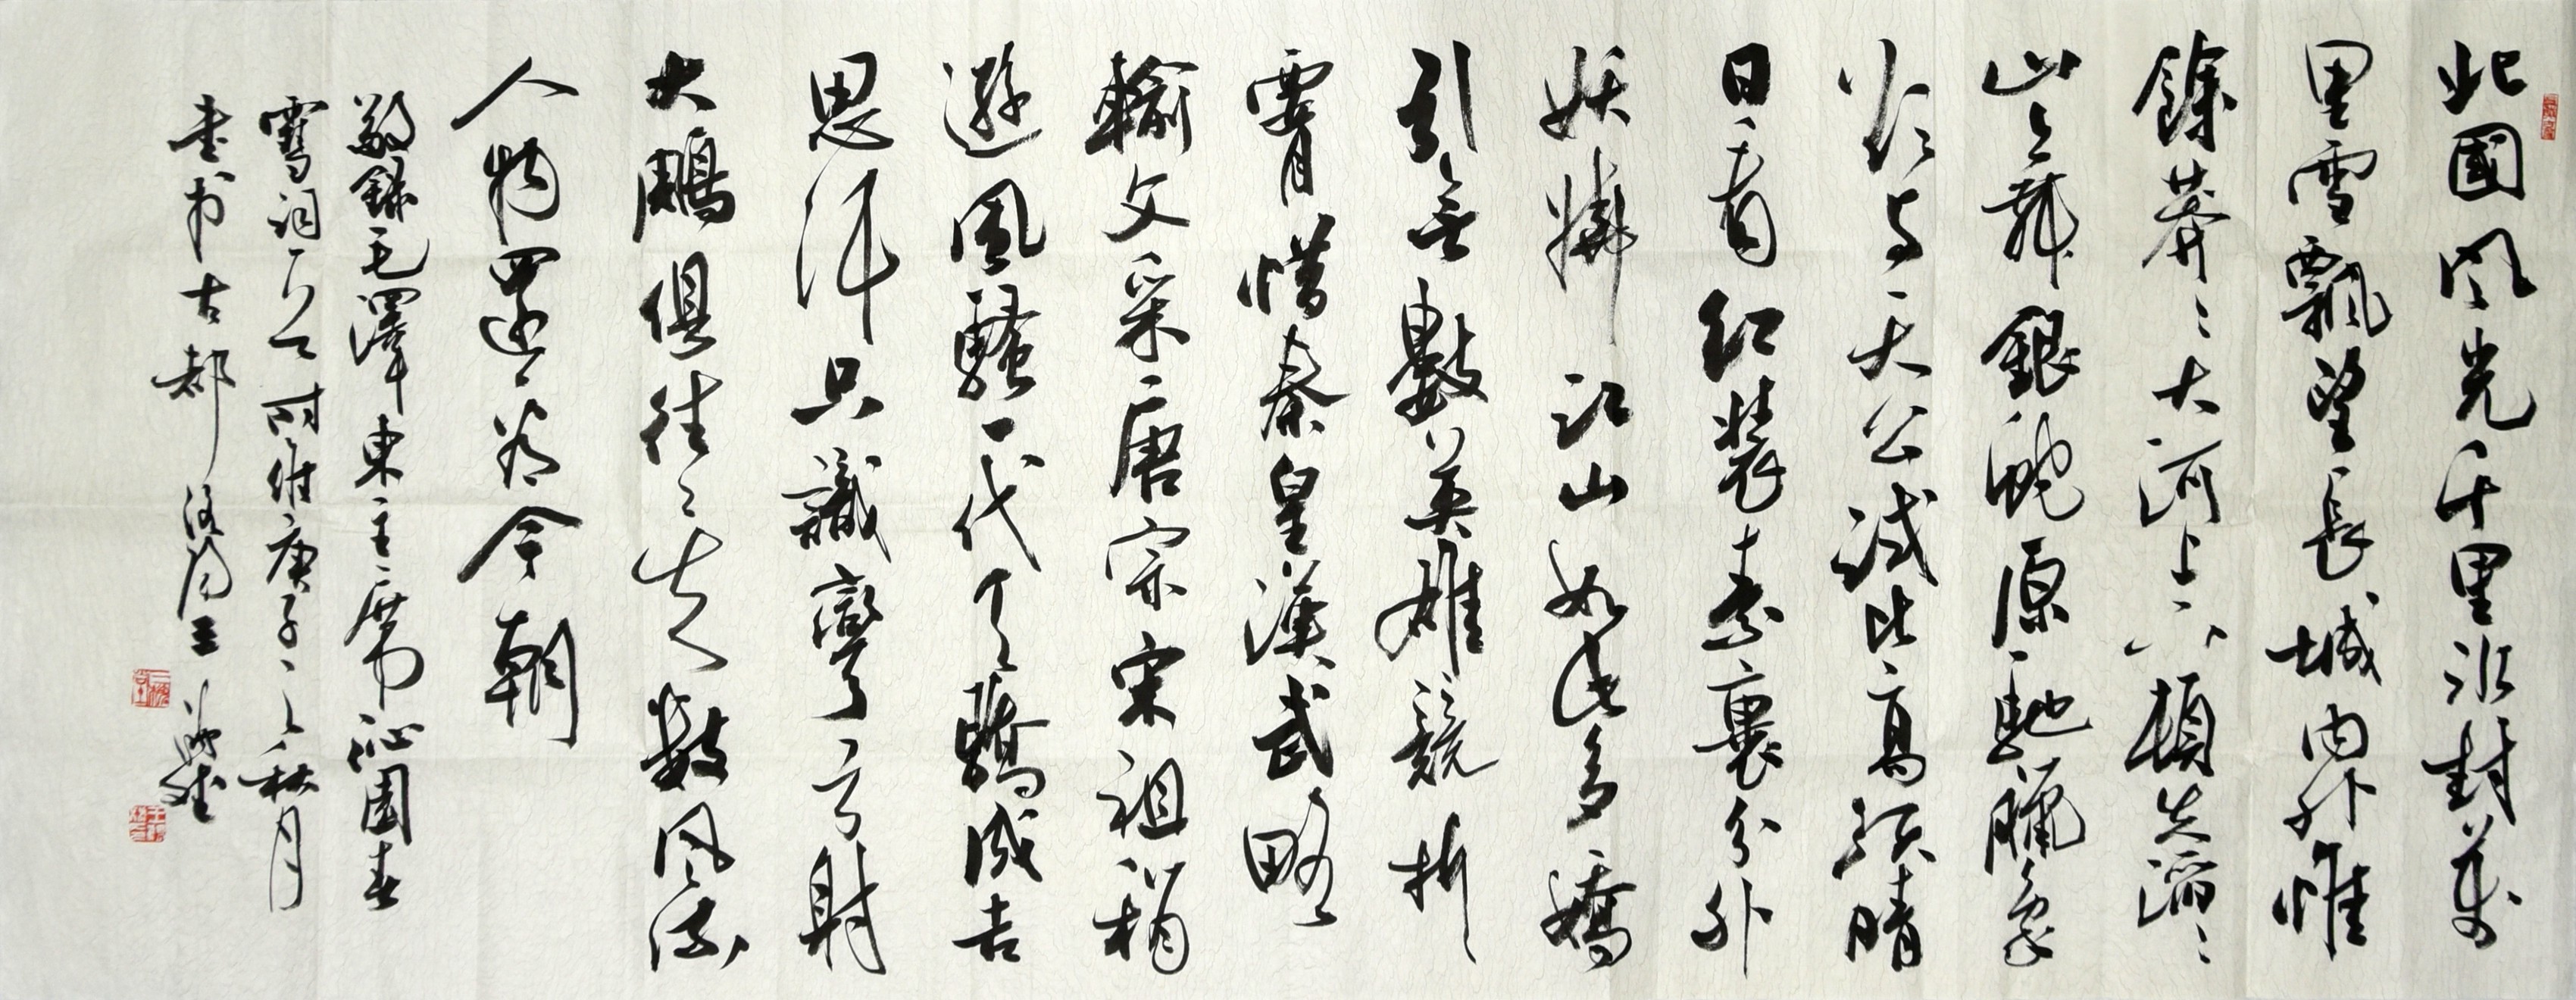 北國风光千里冰封萬
里雪飄望長城内外惟
餘莽〻大河上下頓失滔〻
山舞銀蛇原馳臘象
欲与天公試比高須晴
日看红裝素裹分外
妖嬈江山如此多嬌
引無數英雄競折
腰惜秦皇漢武略
輸文采唐宗宋祖稍
遜風騷一代天驕成吉
思汗只識彎弓射
大鵰俱往矣数风流
人物還看今朝
敬錄毛澤東主席沁園春
雪詞一首时维庚子之秋月
書于古都洛陽王